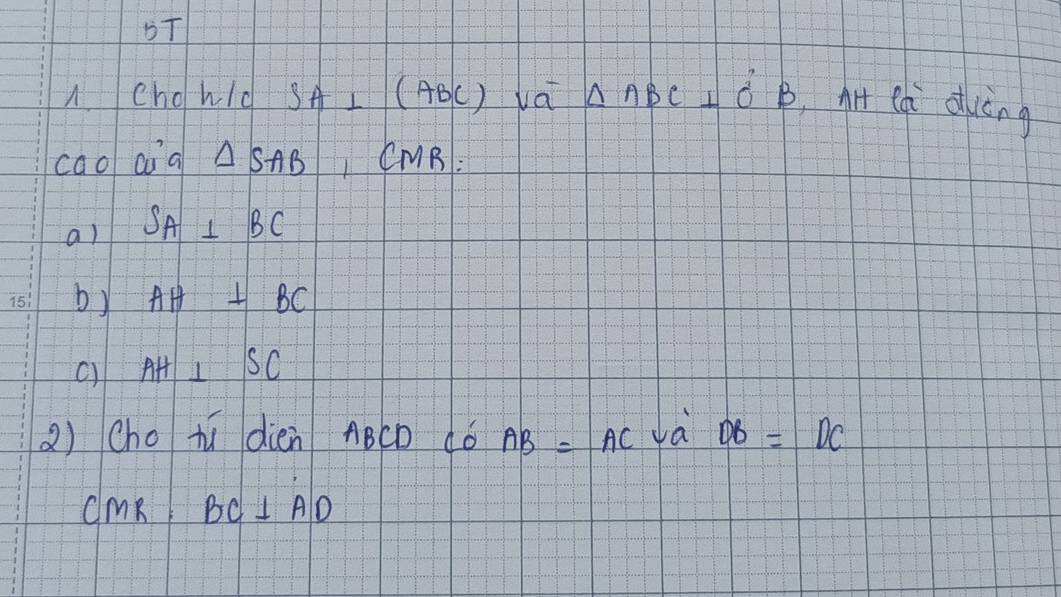 BT
1 Cho h/c SA ⊥ (ABC) và Δ ABC ⊥ ở B, AH là đường
cao của Δ SAB , CMR:
a) SA ⊥ BC
15 b) AH ⊥ BC
c) AH ⊥ SC
2) Cho tứ diện ABCD có AB = AC và DB = DC
CMR : BC ⊥ AD